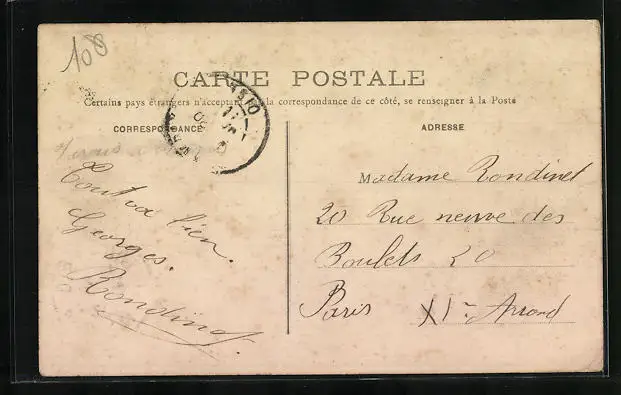 108
CARTE POSTALE
Certains pays étrangers n'acceptant la correspondance de ce côté, se renseigner à la Poste
CORRESPONDANCE
Tout va bien.
Georges.
Rondinet.
ADRESSE
Madame Rondinet
20 Rue neuve des
Boulets 20
Paris XIe Arrond